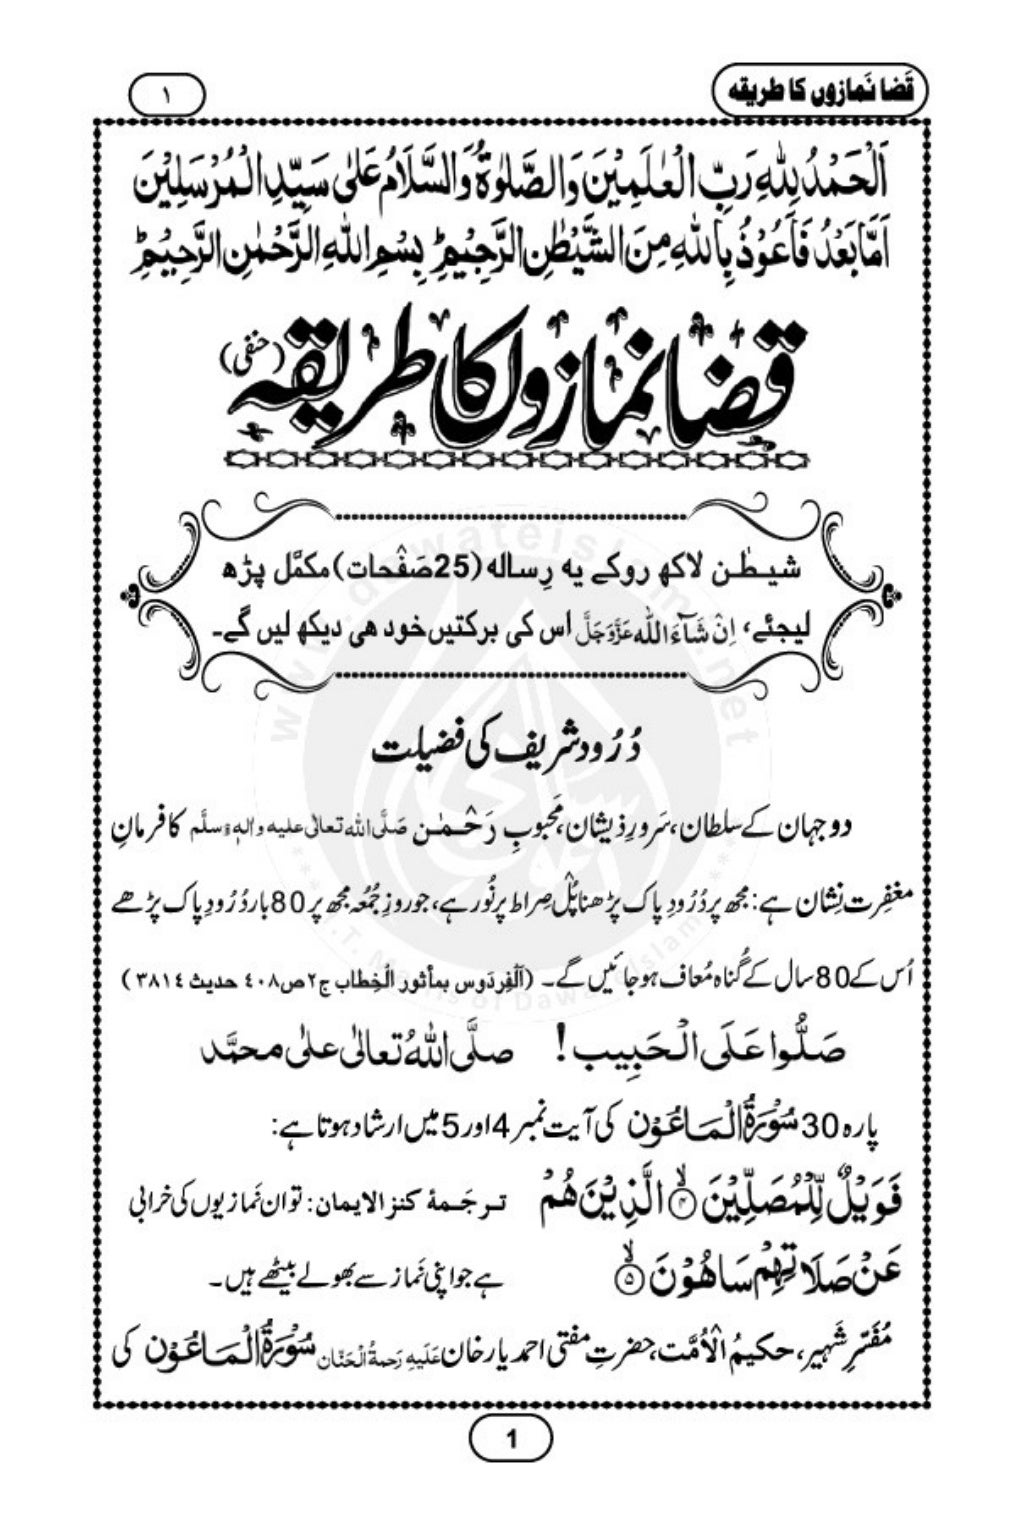 قَضا نَمازوں کا طریقہ
١
اَلْحَمْدُ لِلّٰهِ رَبِّ الْعٰلَمِيْنَ وَالصَّلٰوةُ وَالسَّلَامُ عَلٰى سَيِّدِ الْمُرْسَلِيْنَ
اَمَّا بَعْدُ فَاَعُوْذُ بِاللّٰهِ مِنَ الشَّيْطٰنِ الرَّجِيْمِؕ بِسْمِ اللّٰهِ الرَّحْمٰنِ الرَّحِيْمِؕ
قضا نمازوں کا طریقہ (حنفی)
شیطٰن لاکھ روکے یہ رِسالہ (25صَفْحات) مکمَّل پڑھ
لیجئے، اِنْ شَآءَ اللّٰه عَزَّوَجَلَّ اس کی برکتیں خود ھی دیکھ لیں گے۔
دُرُود شریف کی فضیلت
دو جہان کے سلطان، سَرورِ ذیشان، مَحبوبِ رَحْمٰن صَلَّی اللّٰہ تعالٰی علیہ واٰلہٖ وسلَّم کا فرمانِ
مغفِرت نِشان ہے: مجھ پر دُرُودِ پاک پڑھنا پُلْ صِراط پر نُور ہے، جو روزِ جُمُعہ مجھ پر 80 بار دُرُودِ پاک پڑھے
اُس کے 80 سال کے گُناہ مُعاف ہو جائیں گے۔ (اَلْفِردَوس بمأثور الْخِطاب ج٢ ص٤٠٨ حدیث ٣٨١٤)
صَلُّوا عَلَی الْحَبِیب! صلَّی اللّٰہُ تعالٰی علٰی محمَّد
پارہ 30 سُوْرَۃُ الْمَاعُوْن کی آیت نمبر 4 اور 5 میں ارشاد ہوتا ہے:
فَوَيْلٌ لِّلْمُصَلِّيْنَۙ۴ الَّذِيْنَ هُمْ تر جَمۂ کنز الایمان: تو ان نَمازیوں کی خرابی
عَنْ صَلَاتِهِمْ سَاهُوْنَۙ۵ ہے جو اپنی نَماز سے بھولے بیٹھے ہیں۔
مُفَسّرِ شَہیر، حکیمُ الْاُمَّت، حضرتِ مفتی احمد یار خان عَلَیہِ رَحمۃُ الْحَنّان سُوْرَۃُ الْمَاعُوْن کی
1
www.dawateislami.net